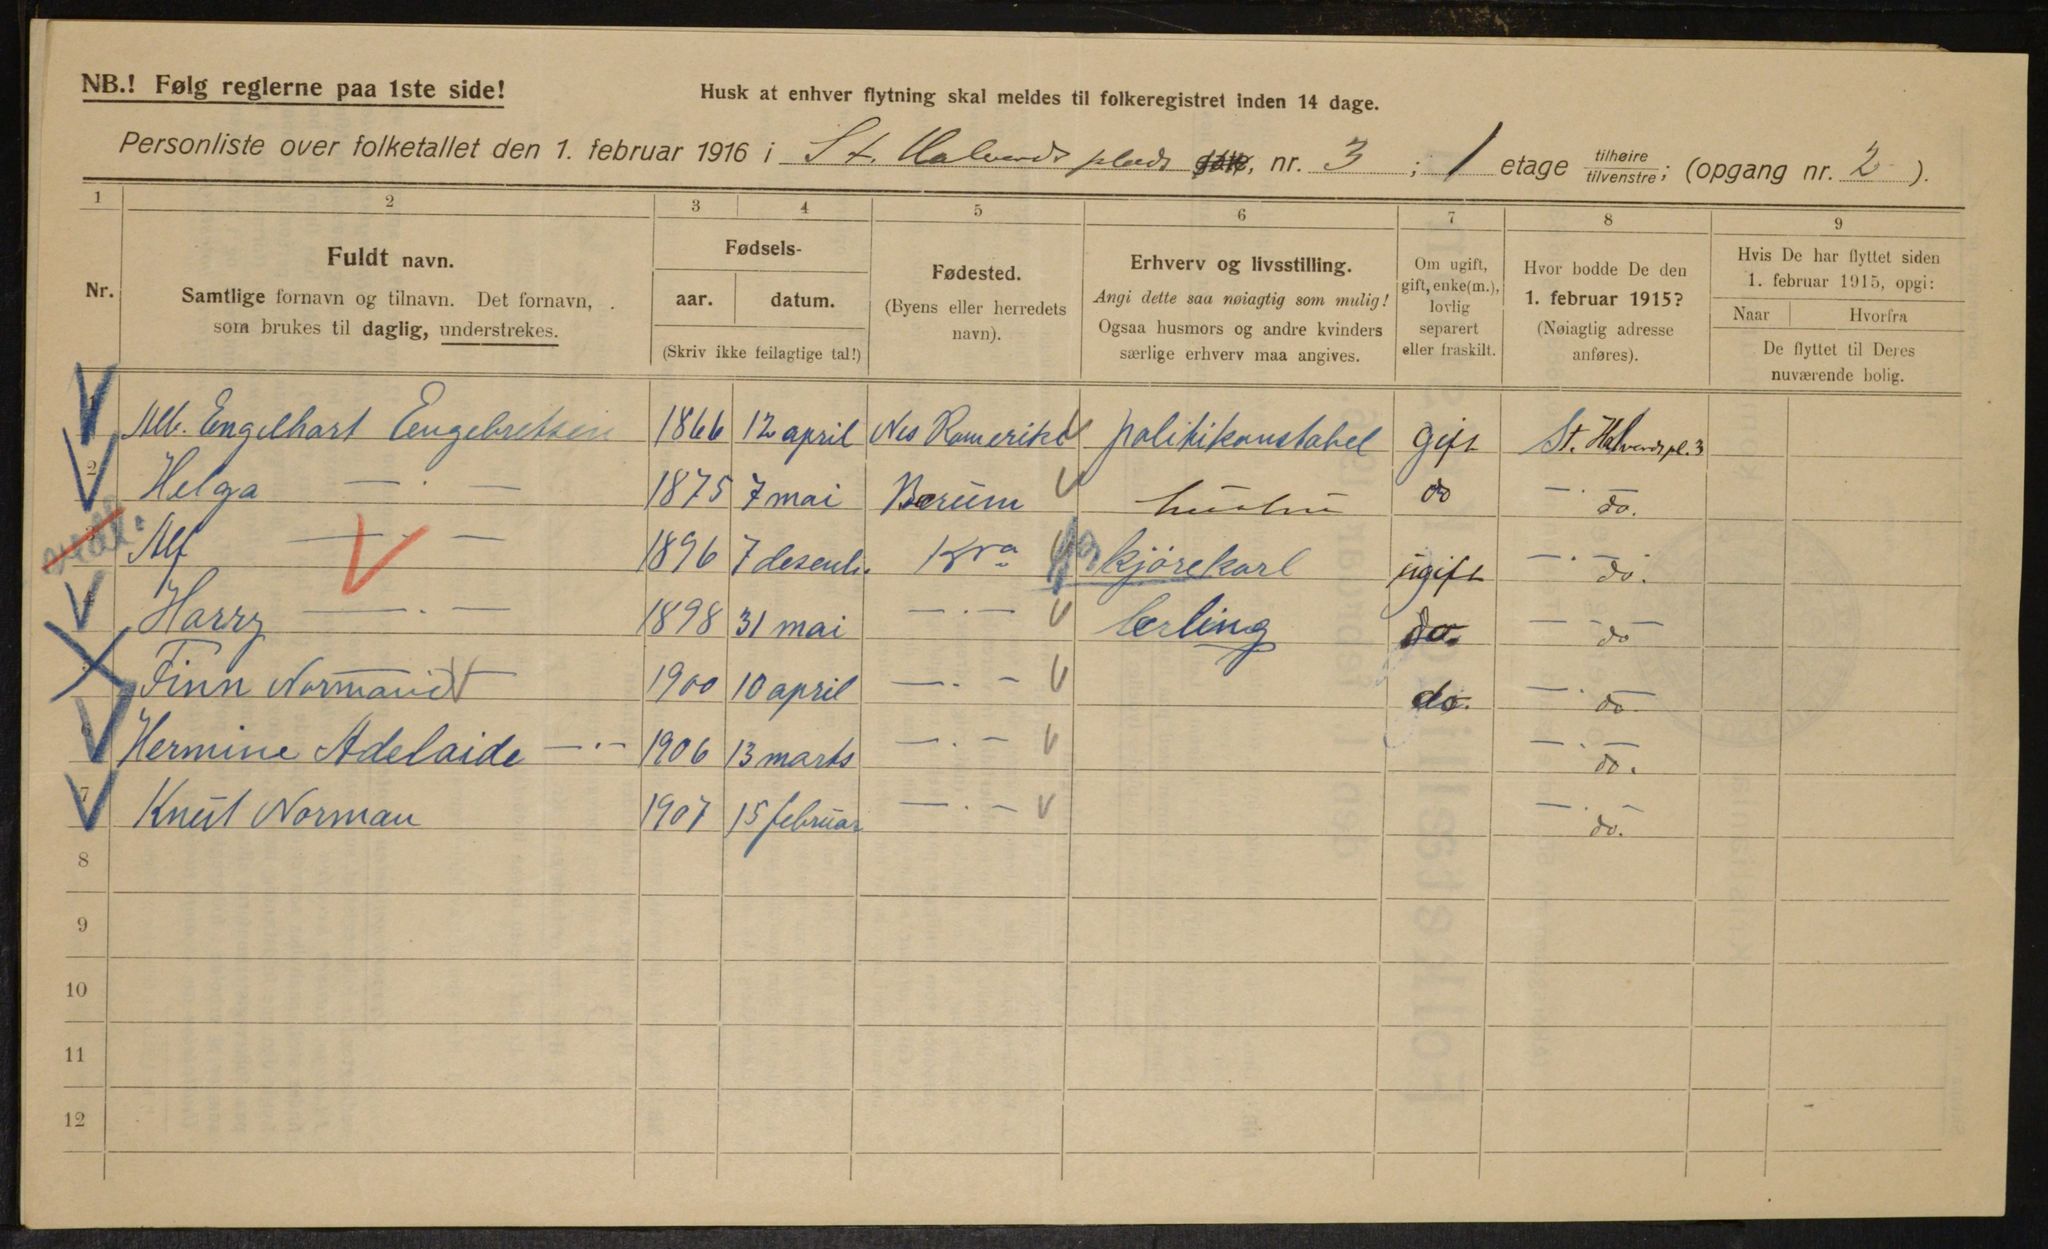 NB.! Følg reglerne paa 1ste side!
Husk at enhver flytning skal meldes til folkeregistret inden 14 dage.
Personliste over folketallet den 1. februar 1916 i St. Halvards plads nr. 3 ; 1 etage tilhøire tilvenstre; (opgang nr. 2 ).
1 2 3 4 5 6 7 8 9
Nr.
Fuldt navn.
Samtlige fornavn og tilnavn. Det fornavn,
som brukes til daglig, understrekes.
Fødsels-
aar. datum.
(Skriv ikke feilagtige tal!)
Fødested.
(Byens eller herredets
navn).
Erhverv og livsstilling.
Angi dette saa nøiagtig som mulig!
Ogsaa husmors og andre kvinders
særlige erhverv maa angives.
Om ugift,
gift, enke(m.),
lovlig
separert
eller fraskilt.
Hvor bodde De den
1. februar 1915?
(Nøiagtig adresse
anføres).
Hvis De har flyttet siden
1. februar 1915, opgi:
Naar Hvorfra
De flyttet til Deres
nuværende bolig.
Alb. Engelhart Engebretsen 1866 12 april Nes Romerike politikonstabel gift St. Halvardspl. 3
2 Helga — . — 1875 7 mai Bærum hustru do — . — do.
Alf — . — 1896 7 desemb. Kra kjørekarl ugift — . — do.
Harry — . — 1898 31 mai — . — Ærling do. — — do
Finn Normand 1900 10 april — . — do. — . — do
6 Hermine Adelaide — . — 1906 13 marts — . — — . — do.
7 Knut Norman 1907 15 februar — . — — . — do.
8
9
10
11
12